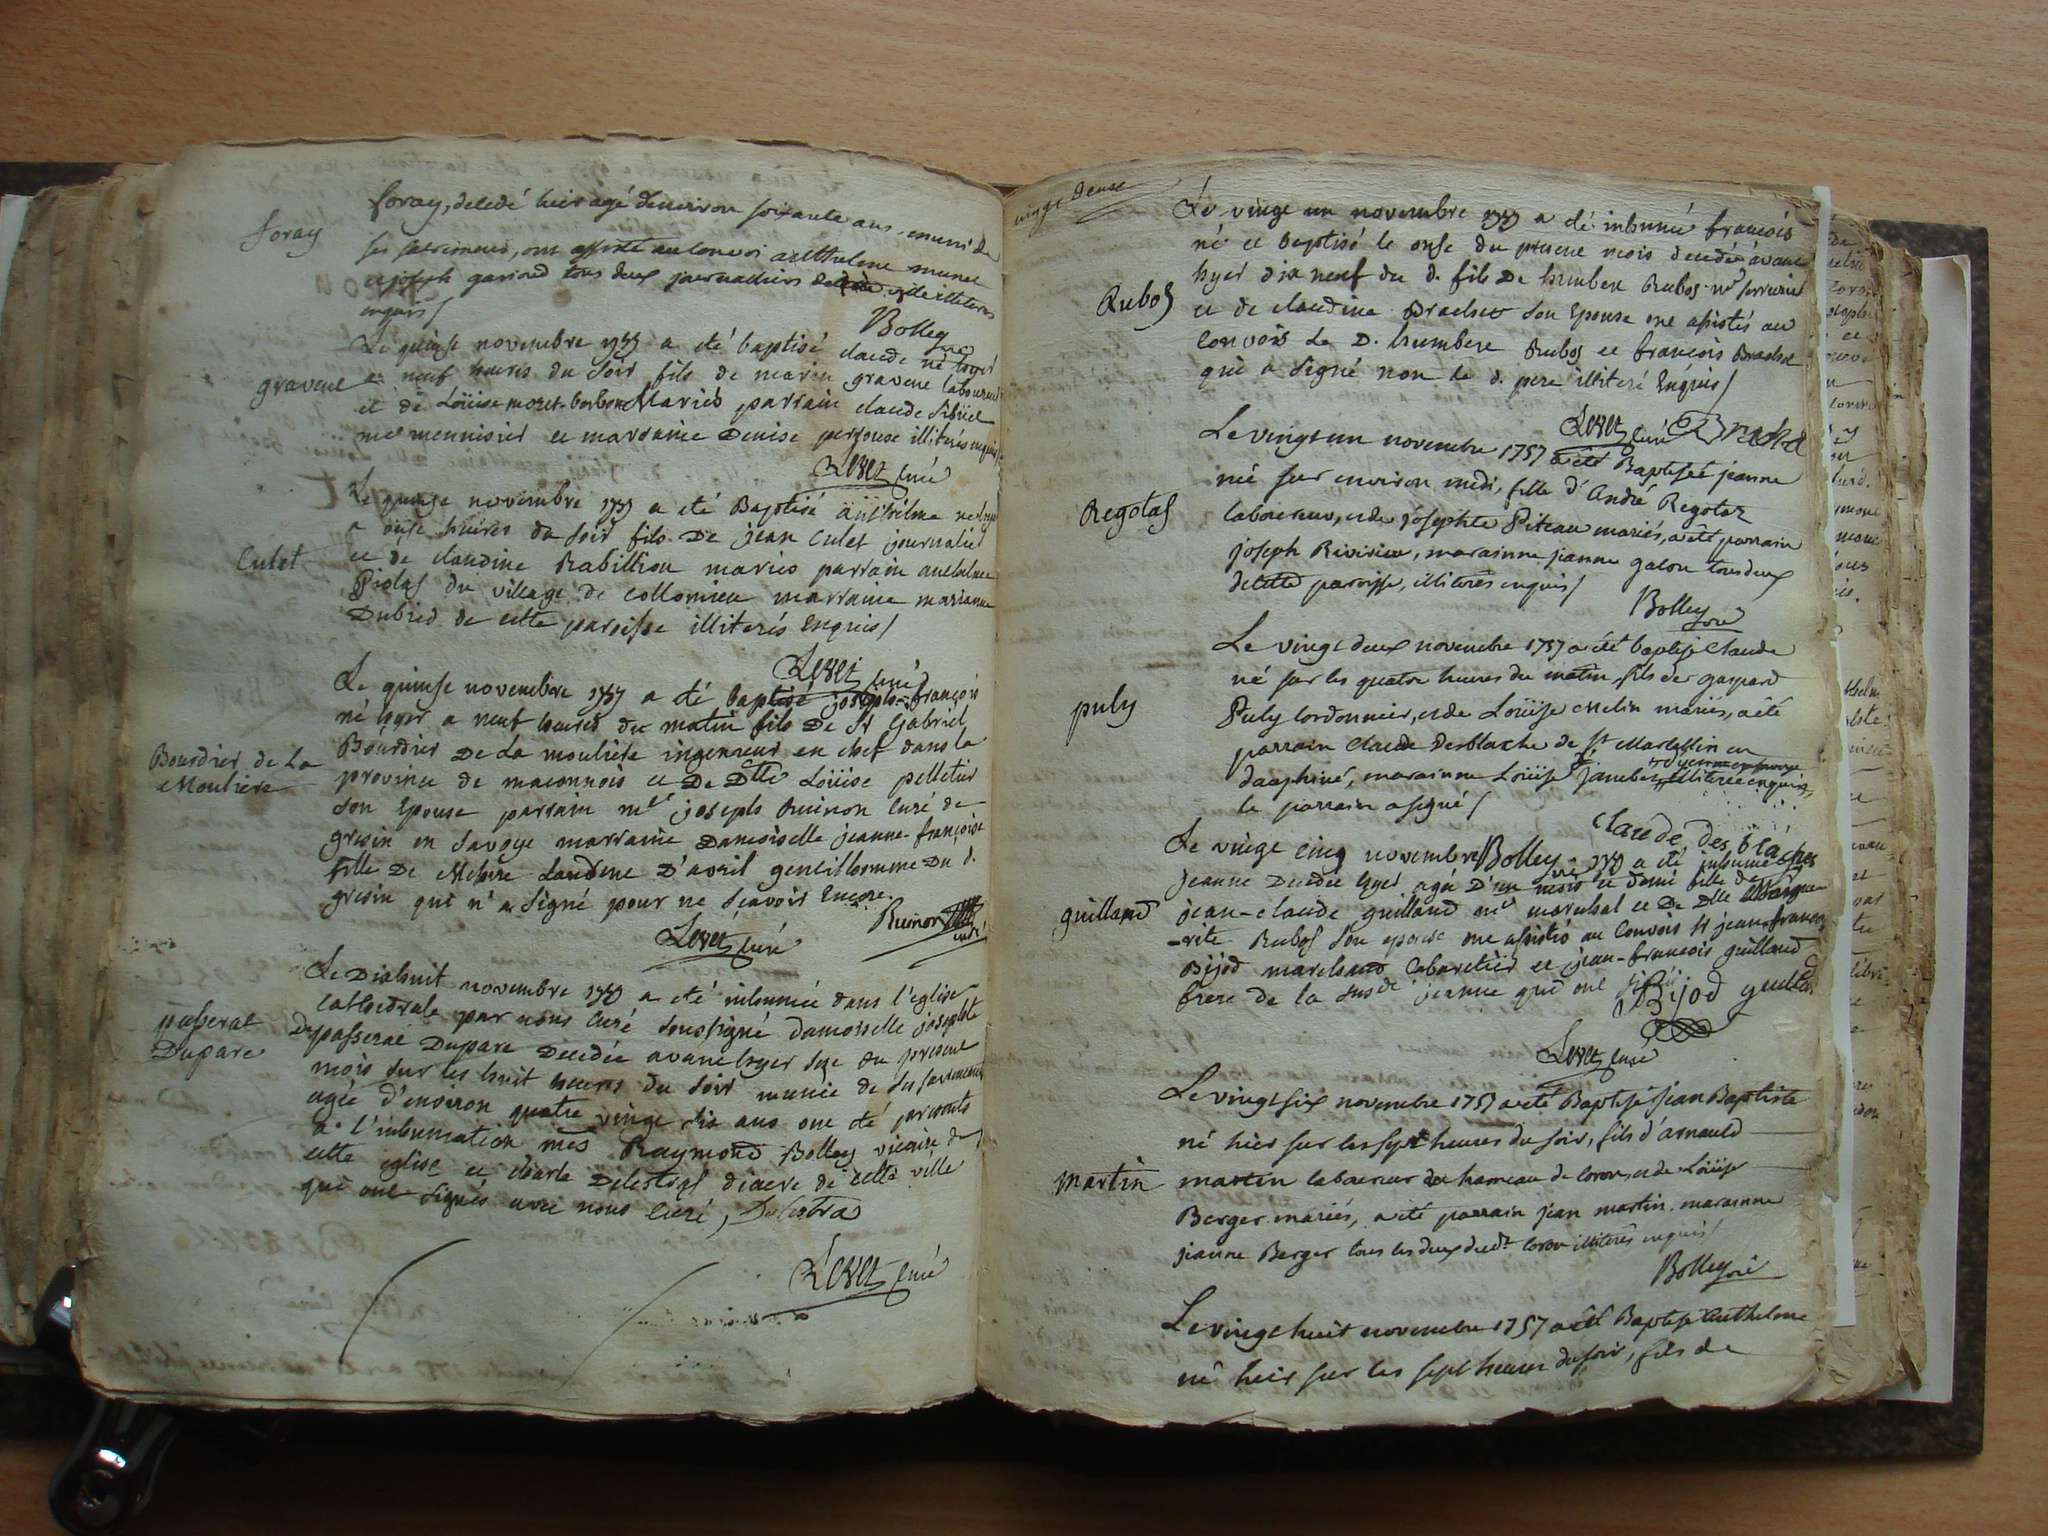 foray
foray, decedé hier agé d'environ soixante ans, muni de
ses sacremens, ont assisté au convoi anthelme munet
et joseph garioud tous deux journalliers de cette ville illiteres
enquis/
Bolley vic
Le quinse novembre 1757 a été baptisé claude né hyer
gravene
a neuf heures du soir fils de marin gravene laboureur
et de Loüise moret-borbon Mariés parrain claude
me mennisier et marraine Denise illiterés enquis/
Levet curé
Le quinse novembre 1757 a été Baptisé anthelme né hyer
a onse heures du soir fils De jean Culet journalier
Culet
et de claudine Rabillion mariés parrain anthelme
Piolas du village de collomieu marraine marianne
Dubied de cette paroisse illiterés Enquis/
Levet curé
Le quinse novembre 1757 a été baptisé joseph-françois
né hyer a neuf heures du matin fils De Sr Gabriel
Bourdier de La
Mouliere
Bourdier De La mouliere ingenieur en chef dans la
province de maconnois et De Dlle Loüise pelletier
son Epouse parrain me joseph Ruinon curé de
gresin en Savoye marraine Damoiselle jeanne-françoise
fille De Messire D'avril gentilhomme Du d.
gresin qui n'a signé pour ne sçavoir Encore.
Levet curé Ruinon curé
Le Dixhuit novembre 1757 a été inhumée dans l'eglise
cathedrale par nous curé soussigné damoiselle josephte
passerat
Duparc
Du passerat Duparc Decedée avant hyer sese du present
mois sur les huit heures du soir munie de ses sacremens
agée d'environ quatre vingt dix ans ont été presents
a l'inhumation mes Raymond Bolley vicaire de
cette eglise et charle Delestras diacre de cette ville
qui ont signés avec nous curé, Delestra
Levet curé
vingt deuse
Le vingt un novembre 1757 a été inhumé françois
né et baptisé le onse du present mois decedé avant
hyer dix neuf du d. fils De humbert Rubos me serrurier
Rubos
et de claudine Brachet son Epouse ont assistés au
convois le D. humbert Rubos et francois Brachet
qui a signé non le d. pere illiteré Enquis/
Levet curé Brachet
Le vingt un novembre 1757 a été Baptisée jeanne
née sur environ midi, fille d'André Regotaz
Regotas
laboureur, et de josephte Piteau mariés, a été parrain
joseph Rivirieu, marainne jeanne galon tous deux
de cette paroisse, illiterés enquis/
Bolley vic
Le vingt deux novembre 1757 a été baptisé claude
né sur les quatre heures du matin, fils de gaspard
puly
Puly cordonnier, et de Loüise Melin mariés, a été
parrain Claude Desblache de St Marcellin en
dauphiné, marainne Loüise janebes illiterée enquise
le parrain a signé/
Claude des blaches
Bolley vic
Le vingt cinq novembre 1757 a été inhumée
jeanne Decedée hyer agée D'un mois et demi fille de
guilland
jean-claude guilland me marechal et De Dlle Margue
-rite Rubos son epouse ont assistés au Convois Sr jean-françois
Bijod marchand Cabaretier et jean-francois guilland
frere de la susde jeanne qui ont signé
Bijod guilland
Levet curé
Le vingt six novembre 1757 a été Baptisé jean Baptiste
né hier sur les sept heures du soir, fils d'arnauld
martin
martin laboureur du hameau de coron, et de Loüise
Berger mariés, a été parrain jean martin. marainne
jeanne Berger tous les deux dudt coron illiterés enquis/
Bolley vic
Le vingt huit novembre 1757 a été Baptisé Anthelme
né hier sur les sept heures du soir, fils de